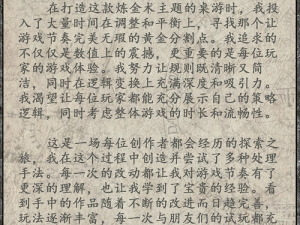 在打造这款炼金术主题的桌游时，我投
入了大量时间在调整和平衡上，寻找那个让
游戏节奏完美无瑕的黄金分割点。我追求的
不仅仅是数值上的震撼，更重要的是每位玩
家的游戏体验。我努力让规则既清晰又简
洁，同时在逻辑变换上充满深度和吸引力。
我渴望让每位玩家都能充分展示自己的策略
逻辑，同时考虑整体游戏的时长和流畅性。
这是一场每位创作者都会经历的探索之
旅，我在这个过程中创造并尝试了多种处理
手法。每一次的改动都让我对游戏节奏有了
更深的理解，也让我学到了宝贵的经验。看
到手中的作品随着不断的改进而日趋完善，
玩法逐渐丰富，每一次与朋友们的试玩都充